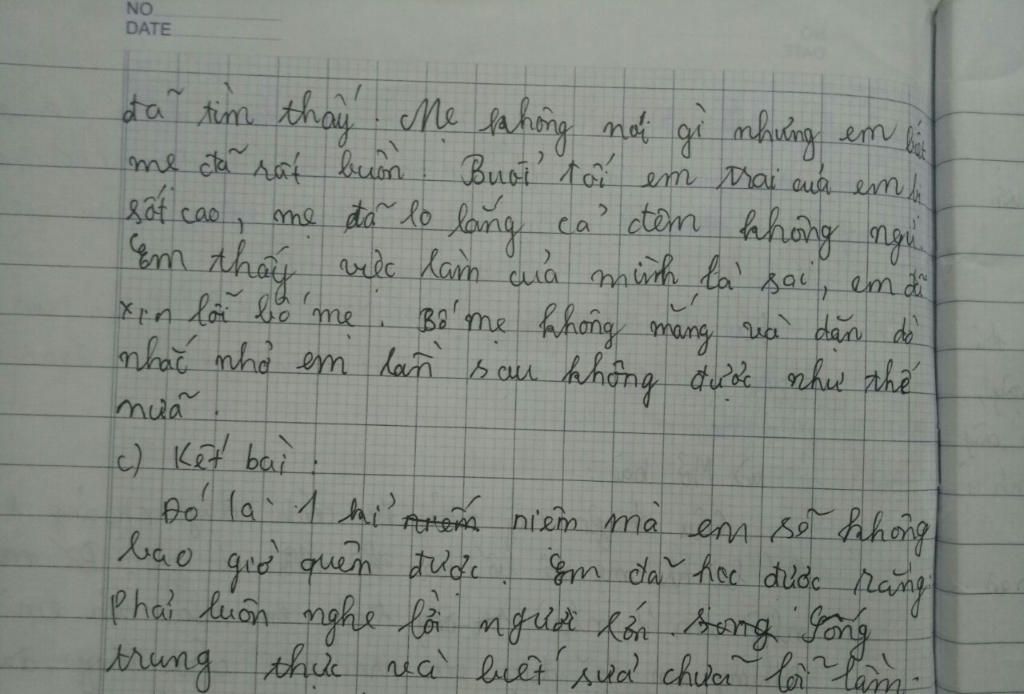 NO
DATE
đã tìm thấy. Mẹ không nói gì nhưng em biết
mẹ đã rất buồn. Buổi tối em trai của em bị
sốt cao, mẹ đã lo lắng cả đêm không ngủ.
Em thấy việc làm của mình là sai, em đã
xin lỗi bố mẹ. Bố mẹ không mắng và dặn dò
nhắc nhở em lần sau không được như thế
nữa.
c) Kết bài:
Đó là 1 kỉ niệm mà em sẽ không
bao giờ quên được. Em đã học được rằng
Phải luôn nghe lời người lớn. Sống
trung thực và biết sửa chữa lỗi lầm.